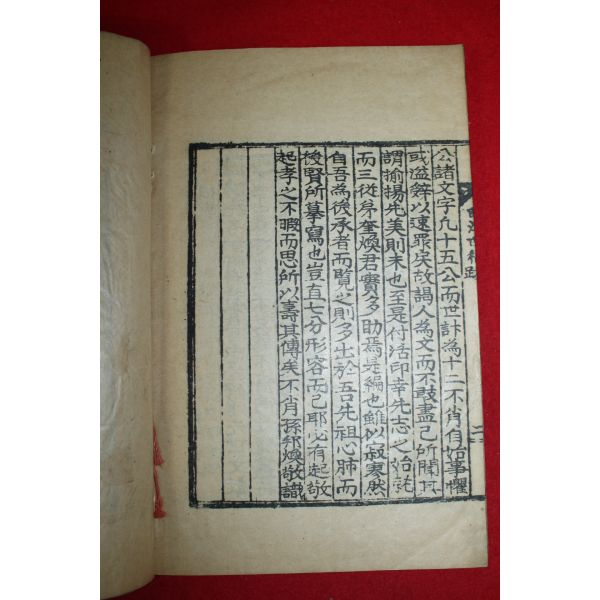 公諸文字凡十五公而世計為十二不肖自始事懼
或溢辭以速罪戾故謁人為文而不敢盡己所聞其
謂揄揚先美則末也至是付活印幸先志之始就
而三從弟奎煥君實多助焉是編也雖似寂寥然
自吾為後承者而覽之則多出於吾先祖心肺而
後賢所摹寫也豈直七分形容而已耶必有起敬
起孝之不暇而思所以壽其傳矣不肖孫邦煥敬識
二